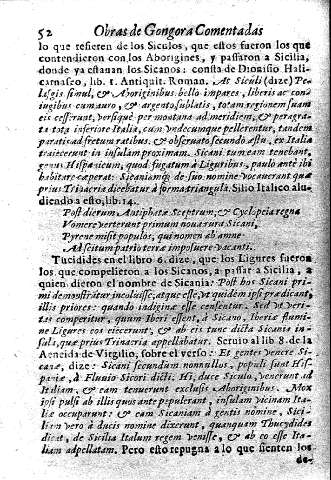 52 Obras de Gongora Comentadas
lo que refieren de los Siculos, que estos fueron los que
contendieron con los Aborigines, y passaron a Sicilia,
donde ya estauan los Sicanos: consta de Dionisio Hali-
carnaseo, lib. 1. Antiquit. Roman. At Siculi (dize) Pe-
lasgis simul, & Aboriginibus bello impares, liberis ac con-
iugibus cum auro, & argento sublatis, totam regionem suam
eis cesserunt, versique per montana ad meridiem, & peragra-
ta tota inferiore Italia, cum vndecunque pellerentur, tandem
paratis ad fretum ratibus, & obseruato secundo æstu, ex Italia
traiecerunt in insulam proximam. Sicani tum eam tenebant,
genus Hispanicum, quod fugatum à Liguribus, paulo ante ibi
habitare cæperat: Sicaniamque de suo nomine vocauerant quæ
prius Trinacria dicebatur à forma triangula. Silio Italico alu-
diendo a esto, lib. 14.
Post dirum Antiphatæ Sceptrum, & Cyclopia regna
Vomere verterunt primum noua rura Sicani,
Pyrene misit populos, qui nomen ab amne
Adscitum patrio terræ imposuere vacanti.
Tucidides en el libro 6. dize, que los Ligures fueron
los que compelieron a los Sicanos, a passar a Sicilia, a
quien dieron el nombre de Sicania: Post hos Sicani pri-
mi demonstrãtur incoluisse, atque esse, vt quidem ipsi prædicant,
illis priores: quando indigine esse censentur. Sed vt veri-
tas comperitur, quum Iberi essent, à Sicano, Iberiæ flumi-
ne Ligures eos eiecerunt, & ab eis tunc dicta Sicania in-
sula, quæ prius Trinacria appellabatur. Seruio al lib 8. de la
Aeneida de Virgilio, sobre el verso: Et gentes venere Si-
canæ, dize: Sicani secundum nonnullos, populi sunt His-
paniæ, à Fluuio Sicori dicti: Hi, duce Siculo, venerunt ad
Italiam, & eam tenuerunt exclusis Aboriginibus. Mox
ipsi pulsi ab illis quos ante pepulerant, insulam vicinam Ita-
liæ occuparunt: & eam Sicaniam à gentis nomine, Sici-
liam vero à ducis nomine dixerunt, quamquam Thucydides
dicat, de Sicilia Italum regem venisse, & ab eo esse Ita-
liam adpellatam. Pero esto repugna a lo que sienten los
de-